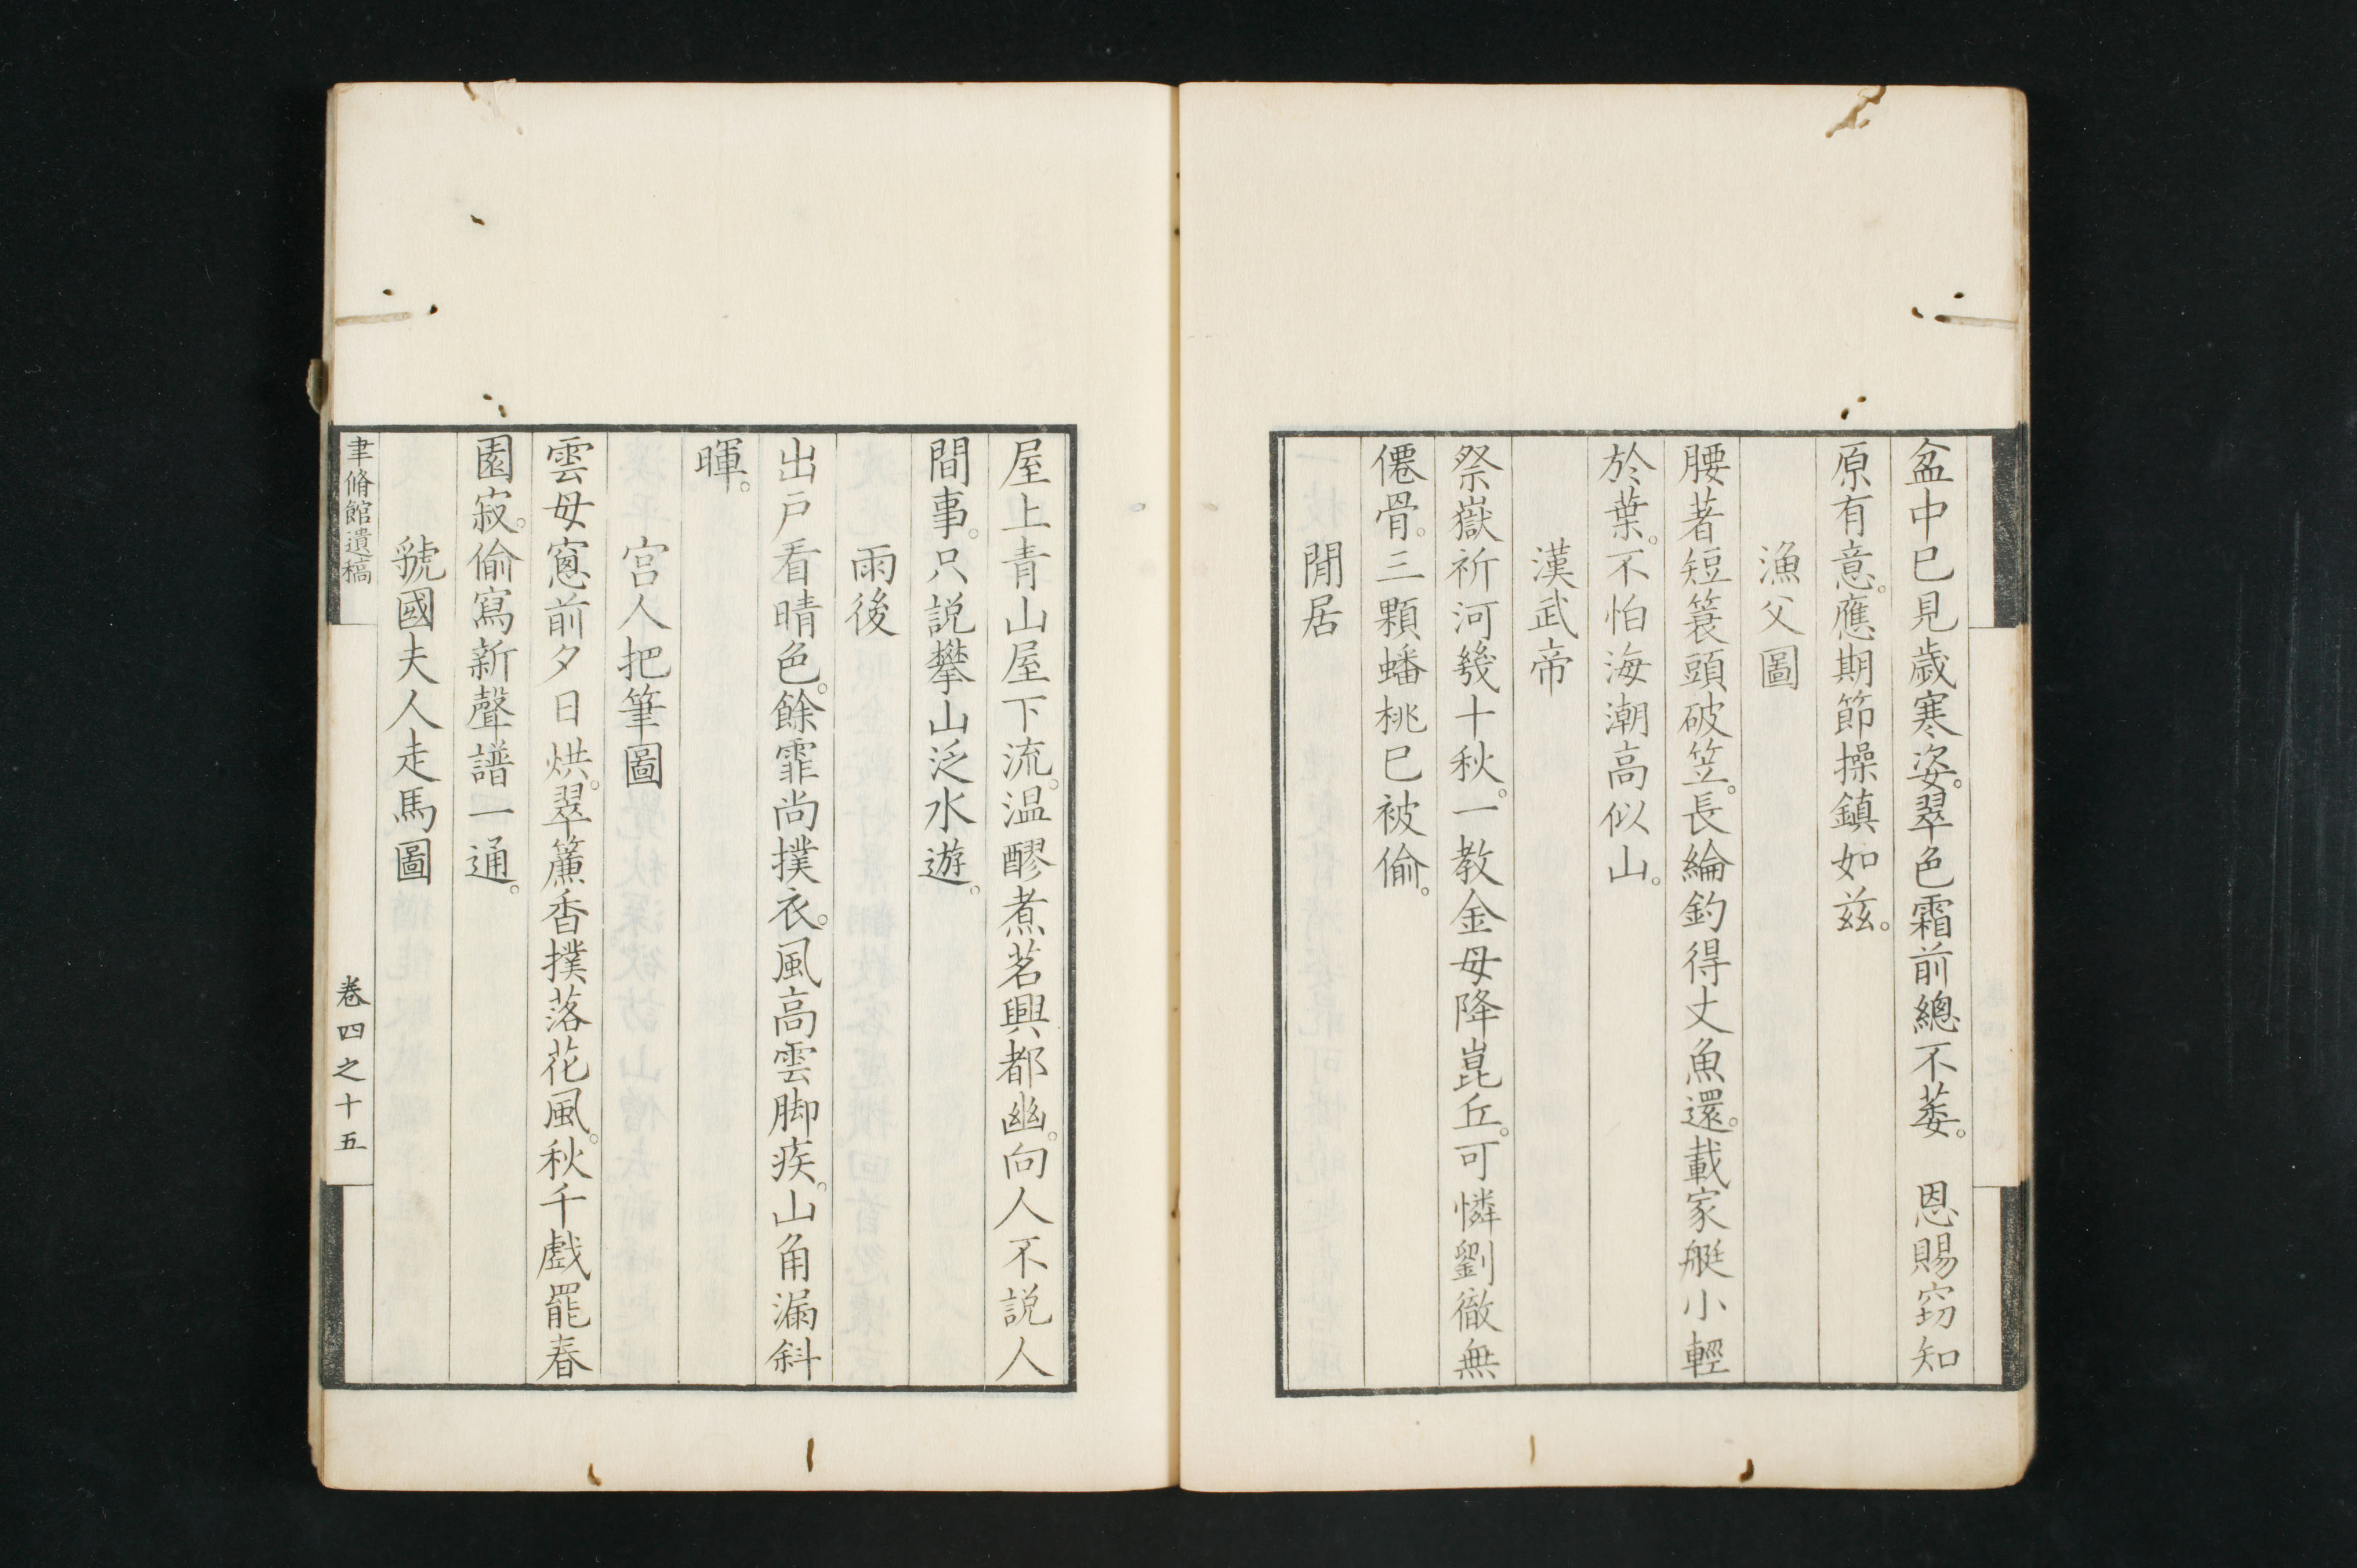 盆中已見歳寒姿。翠色霜前總不萎。　恩賜窈知
原有意。應期節操鎮如兹。
漁父圖
腰著短簑頭破笠。長綸釣得丈魚還。載家艇小輕
於葉。不怕海潮高似山。
漢武帝
祭嶽祈河幾十秋。一教金母降崑丘。可憐劉徹無
僊骨。三顆蟠桃已被偷。
閒居
屋上青山屋下流。温醪煮茗興都幽。向人不説人
間事。只説攀山泛水遊。
雨後
出戸看晴色。餘霏尚撲衣。風高雲脚疾。山角漏斜
暉。
宮人把筆圖
雲母窻前夕日烘。翠簾香撲落花風。秋千戲罷春
園寂。偷寫新聲譜一通。
虢國夫人走馬圖
聿脩館遺稿
卷四之十五